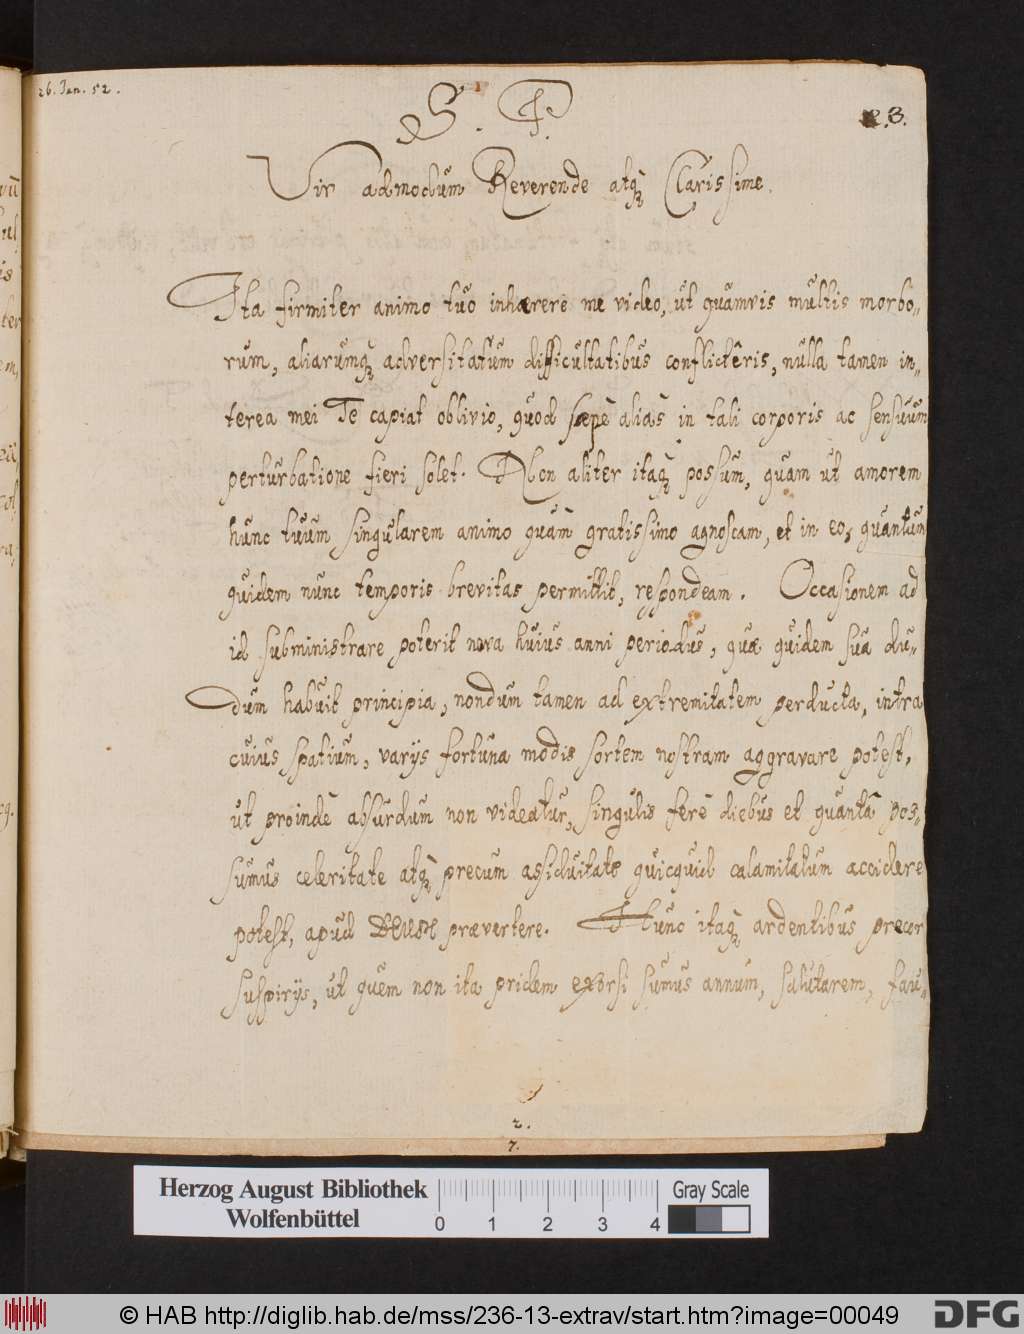 26. Jan. 52.
S. P.
8.
Vir admodum Reverende atq́ꝫ Clarissime.
Ita firmiter animo tuo inhærere me video, ut quamvis multis morbo„
rum, aliarumq́ꝫ adversitatum difficultatibus conflictêris, nulla tamen in„
terea mei Te capiat oblivio, quod sæpè aliàs in tali corporis ac sensuum
perturbatione fieri solet. Non aliter itaq́ꝫ possum, quam ut amorem
hunc tuum singularem animo quàm gratissimo agnoscam, et in eo, quantum
quidem nunc temporis brevitas permittit, respondeam. Occasionem ad
id subministrare poterit nova huius anni periodus, quæ quidem sua du„
dum habuit principia, nondum tamen ad extremitatem perducta, intra
cuius spatium, varijs fortuna modis sortem nostram aggravare potest,
ut proindè absurdum non videatur, singulis ferè diebus et quantâ pos„
sumus celeritate atq́ꝫ precum assiduitate quicquid calamitatum accidere
potest, apud DEUM prævertere. Hunc itaq́ꝫ ardentibus precor
suspirijs, ut quem non ita pridem exorsi sumus annum, salutarem, fau„
2.
7.
Herzog August Bibliothek
Wolfenbüttel
0 1 2 3 4
Gray Scale
© HAB http://diglib.hab.de/mss/236-13-extrav/start.htm?image=00049
DFG